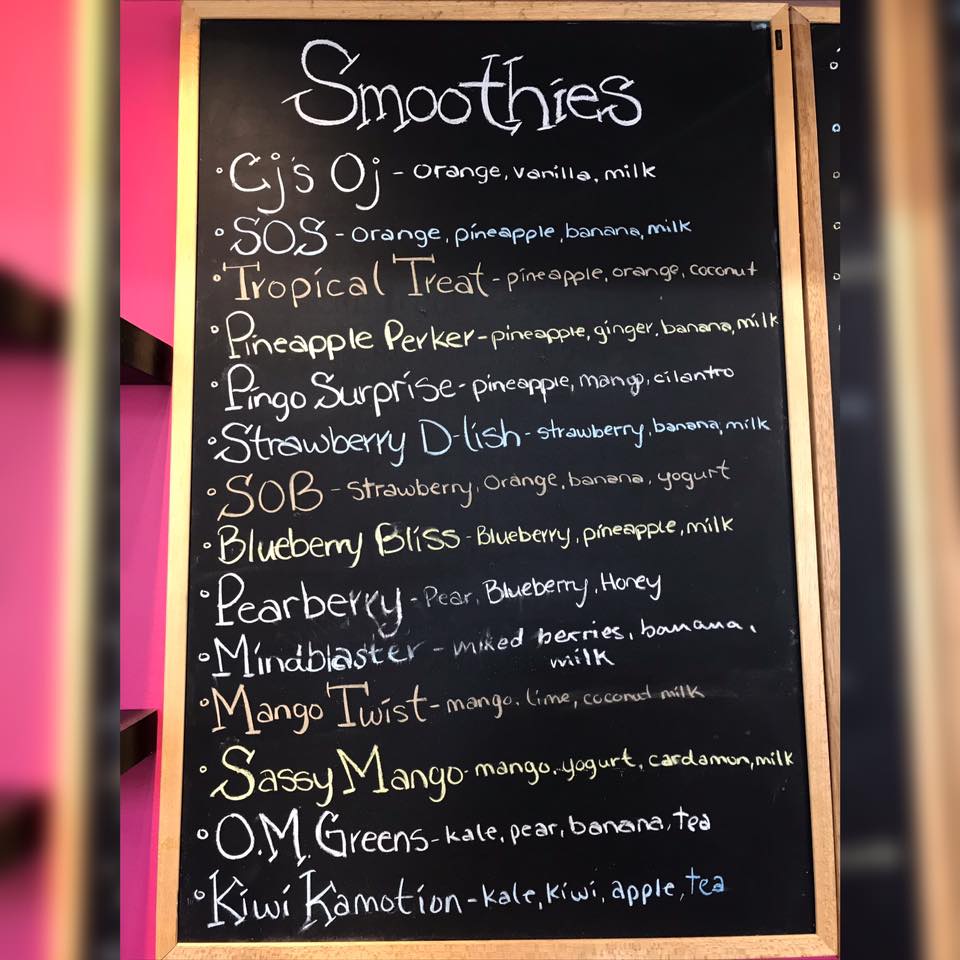 Smoothies
• Cj's Oj - orange, vanilla, milk
• SOS - orange, pineapple, banana, milk
• Tropical Treat - pineapple, orange, coconut
• Pineapple Perker - pineapple, ginger, banana, milk
• Pingo Surprise - pineapple, mango, cilantro
• Strawberry D-lish - strawberry, banana, milk
• SOB - Strawberry, Orange, banana, yogurt
• Blueberry Bliss - Blueberry, pineapple, milk
• Pearberry - Pear, Blueberry, Honey
• Mindblaster - mixed berries, banana,
milk
• Mango Twist - mango, lime, coconut milk
• Sassy Mango - mango, yogurt, cardamon, milk
• O.M. Greens - kale, pear, banana, tea
• Kiwi Kamotion - kale, kiwi, apple, tea